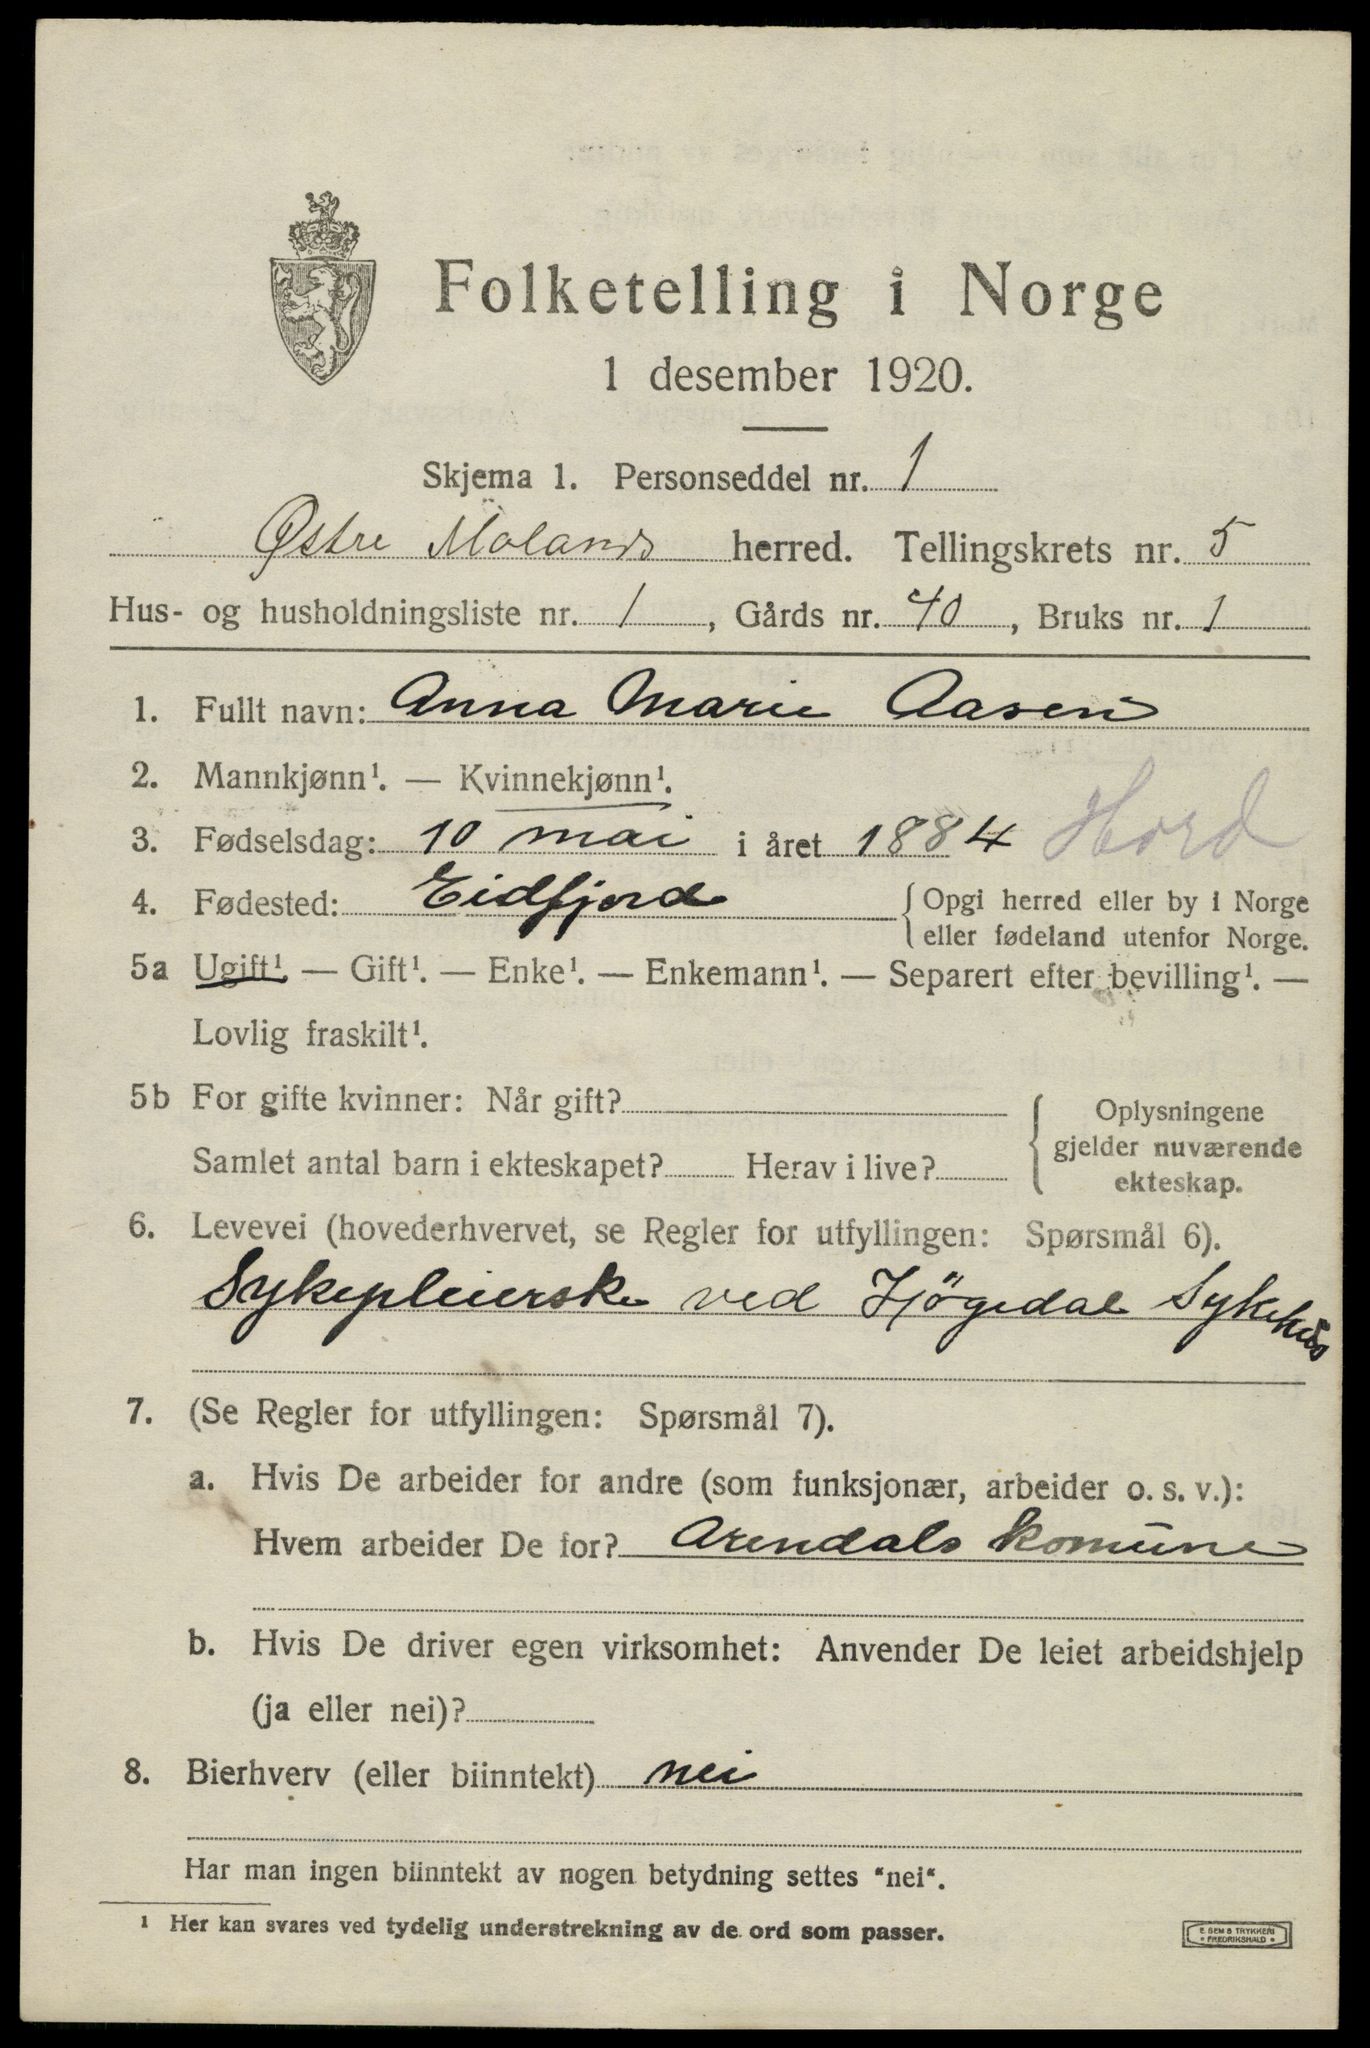 Folketelling i Norge
1 desember 1920.
Skjema 1. Personseddel nr. 1
Østre Molands herred. Tellingskrets nr. 5
Hus- og husholdningsliste nr. 1, Gårds nr. 40, Bruks nr. 1
1. Fullt navn: Anna Marie Aasen
2. Mannkjønn¹. — Kvinnekjønn¹.
3. Fødselsdag: 10 mai i året 1884 Hord
4. Fødested: Eidfjord {Opgi herred eller by i Norge
eller fødeland utenfor Norge.
5a Ugift¹ — Gift¹. — Enke¹. — Enkemann¹. — Separert efter bevilling¹. —
Lovlig fraskilt¹.
5b For gifte kvinner: Når gift? { Oplysningene
gjelder nuværende
Samlet antal barn i ekteskapet? Herav i live?
ekteskap.
6. Levevei (hovederhvervet, se Regler for utfyllingen: Spørsmål 6).
Sykepleierske ved Hjögedal Sykehus
7. (Se Regler for utfyllingen: Spørsmål 7).
a. Hvis De arbeider for andre (som funksjonær, arbeider o. s. v.):
Hvem arbeider De for? Arendals komune
b. Hvis De driver egen virksomhet: Anvender De leiet arbeidshjelp
(ja eller nei)?
8. Bierhverv (eller biinntekt) nei
Har man ingen biinntekt av nogen betydning settes “nei“.
¹ Her kan svares ved tydelig understrekning av de ord som passer.
E SEM S TRYKKERI
• FREDRIKSHALD •